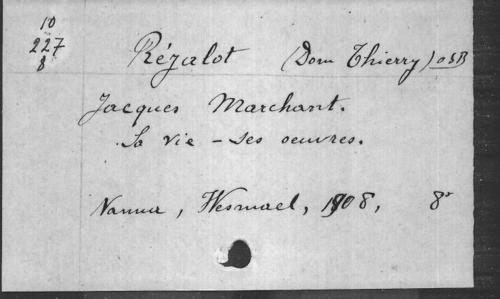 10
227
8
Réjalot (Dom Thierry) OSB
Jacques Marchant.
Sa vie - ses oeuvres.
Namur, Wesmael, 1908, 8°